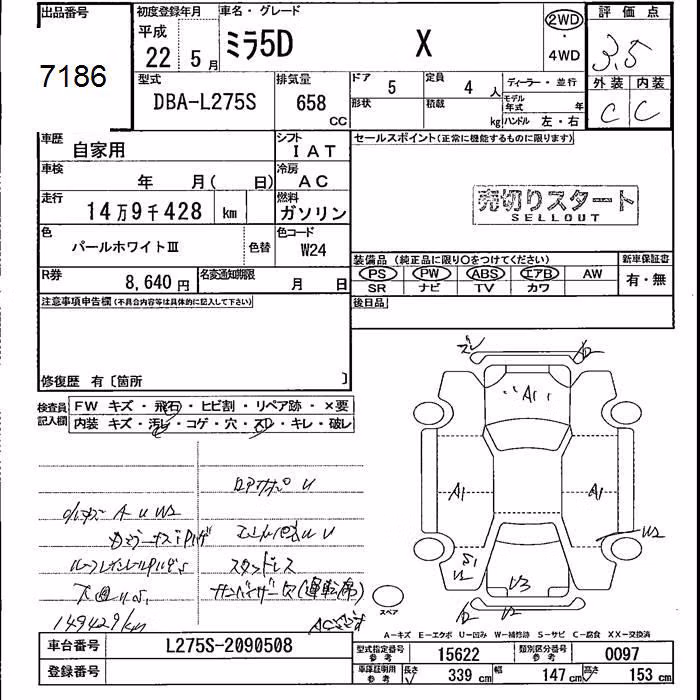 出品番号 初度登録年月 車名・グレード 評価点
7186 平成 22 年 5 月 ミラ5D X 2WD ・ 4WD 3.5
型式 排気量 ドア 5 定員 4 人 ディーラー・並行 外装 内装
DBA-L275S 658 CC 形状 積載 kg モデル年式 年 ハンドル 左・右 C C
車歴 自家用 シフト IAT セールスポイント(正常に機能するものに限ります)
車検 年 月( 日) 冷房 AC
走行 14万9千428 km 燃料 ガソリン 売切りスタート
SELLOUT
色 パールホワイトⅢ 色替 色コード W24
装備品 (純正品に限り○をつけてください) 新車保証書
R券 8,640円 名変通知期限 月 日 PS PW ABS エアB AW 有・無
SR ナビ TV カワ
注意事項申告欄(不具合内容等は具体的に記入して下さい) 後日品
修復歴 有〔箇所 〕
検査員記入欄 FW キズ・飛石・ヒビ割・リペア跡・×要
内装 キズ・汚レ・コゲ・穴・スレ・キレ・破レ
A1
A1 A1
W2
S1
U2
U3
スタッドレス
(運転席)
149429km
スペア
A-キズ E-エクボ U-凹み W-補修跡 S-サビ C-腐食 XX-交換済
車台番号 L275S-2090508 型式指定番号 参考 15622 類別区分番号 参考 0097
登録番号 車庫証明用 参考 長さ 339 cm 幅 147 cm 高さ 153 cm